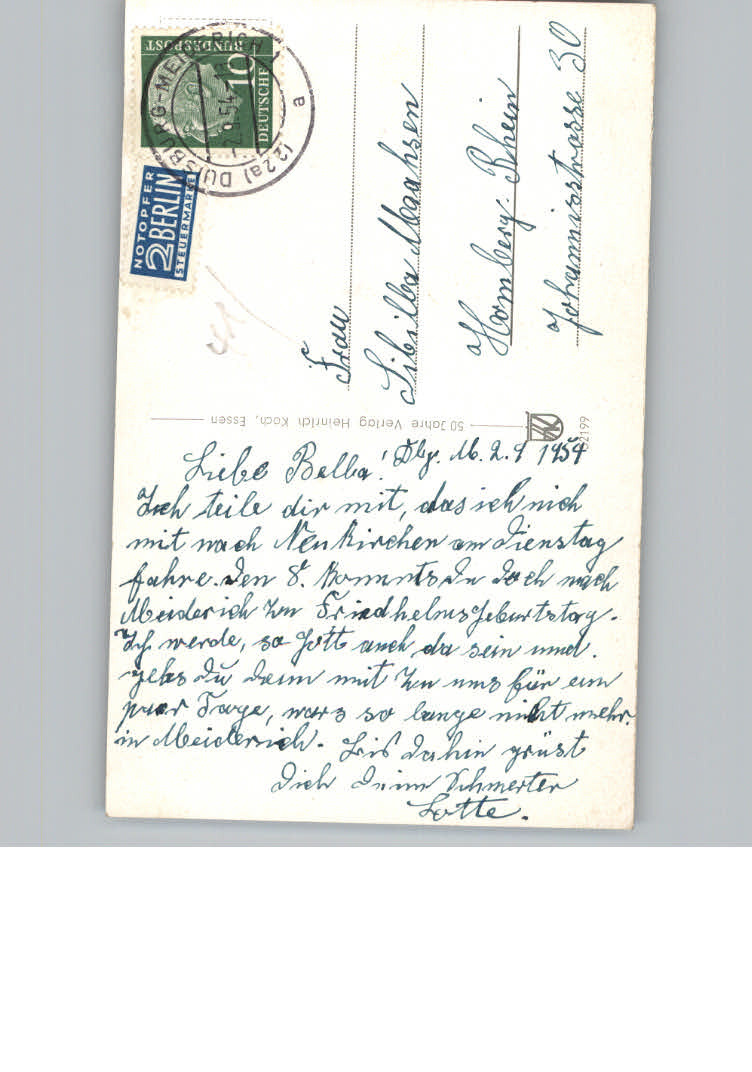 DEUTSCHE
BUNDESPOST
10
(22a) DUISBURG-MEIDERICH 1
2.9.54
a
NOTOPFER
2 BERLIN
STEUERMARKE
Frau
Sibilla Maahsen
Homberg. Rhein
Johannisstrasse 30
50 Jahre Verlag Heinrich Koch, Essen
Dbg. M. 2.9 1954
Liebe Bella!
Ich teile dir mit, das ich nich
mit nach Neukirchen am Dienstag
fahre. Den 8. kommts Du doch nach
Meiderich zu Friedhelms Geburtstag.
Ich werde, so Gott auch da sein und
gehs Du dann mit zu uns für ein
paar Tage, wars so lange nicht mehr
in Meiderich. Bis dahin grüst
Dich Deine Schwester
Lotte.